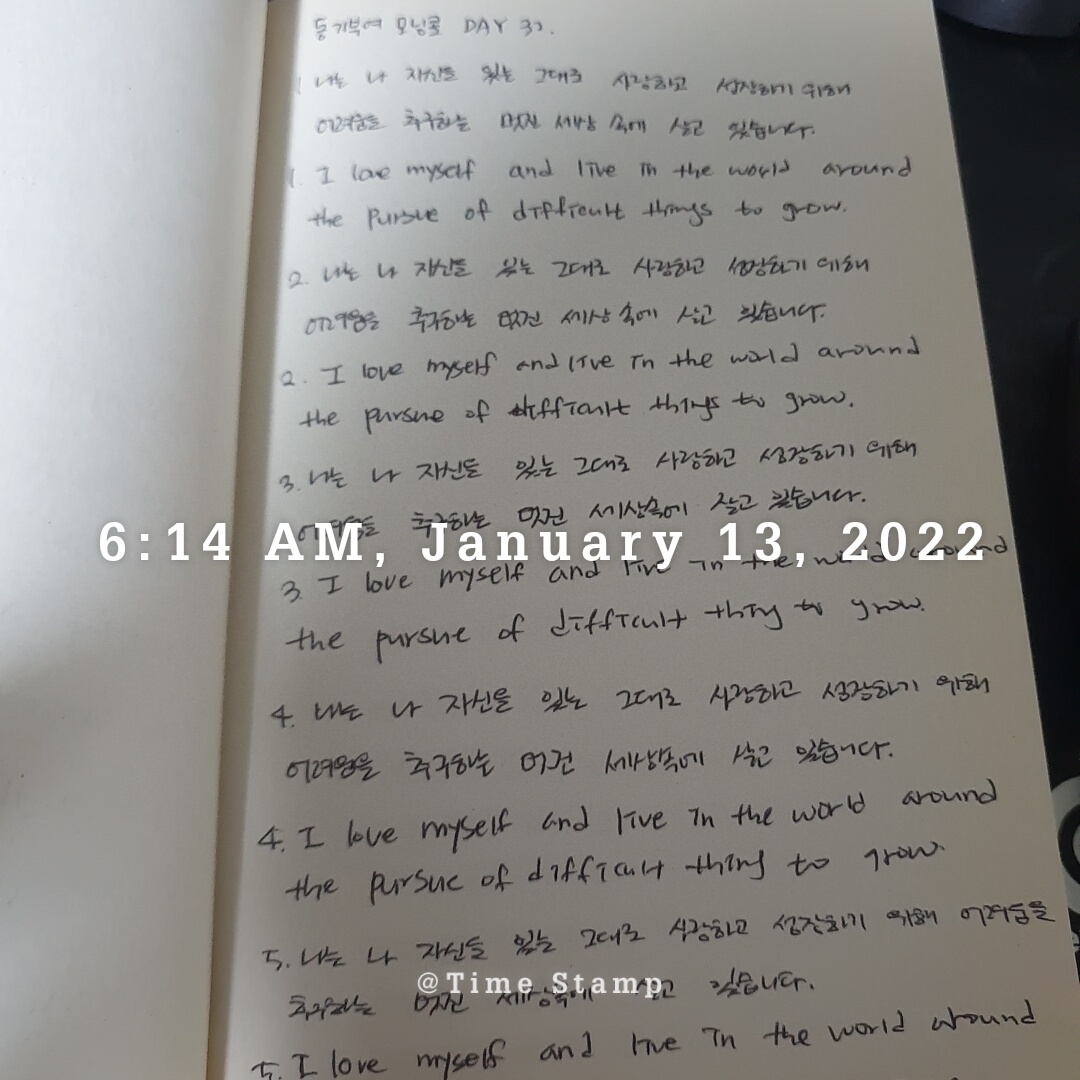 동기부여 모닝콜 DAY 32.
1. 나는 나 자신을 있는 그대로 사랑하고 성장하기 위해
어려움을 추구하는 멋진 세상 속에 살고 있습니다.
1. I love myself and live in the world around
the pursue of difficult things to grow.
2. 나는 나 자신을 있는 그대로 사랑하고 성장하기 위해
어려움을 추구하는 멋진 세상 속에 살고 있습니다.
2. I love myself and live in the world around
the pursue of difficult things to grow.
3. 나는 나 자신을 있는 그대로 사랑하고 성장하기 위해
어려움을 추구하는 멋진 세상속에 살고 있습니다.
6:14 AM, January 13, 2022
3. I love myself and live in the world around
the pursue of difficult thing to grow.
4. 나는 나 자신을 있는 그대로 사랑하고 성장하기 위해
어려움을 추구하는 멋진 세상속에 살고 있습니다.
4. I love myself and live in the world around
the pursue of difficult thing to grow.
5. 나는 나 자신을 있는 그대로 사랑하고 성장하기 위해 어려움을
@Time Stamp
추구하는 멋진 세상속에 살고 있습니다.
5. I love myself and live in the world around